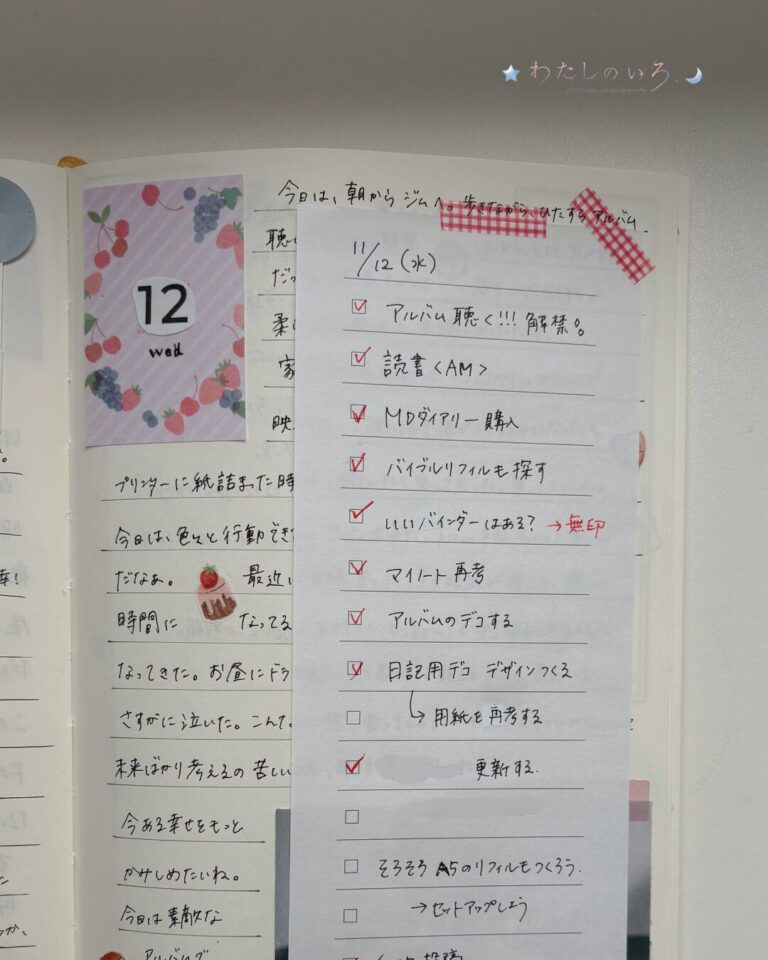 わたしのいろ
12
wed
今日は、朝から ジムへ。歩きながら、ひたすら アルバム
聴
だ
柔
家
映
プリンターに紙詰まった時
今日は、色々と行動でき
だなぁ。 最近
時間に なってる
なってきた。お昼にドラ
さすがに泣いた。こんな
未来ばかり考えるの苦しい
今ある幸せをもっと
かみしめたいね。
今日は素敵な
アルバムが
11/12(水)
アルバム聴く!!! 解禁。
読書<AM>
MDダイアリー購入
バイブルリフィルも探す
いいバインダーはある?→無印
マイノート再考
アルバムのデコする
日記用デコ デザインつくる
↳用紙を再考する
更新する.
そろそろ A5のリフィルもつくろう.
→セットアップしよう
投稿